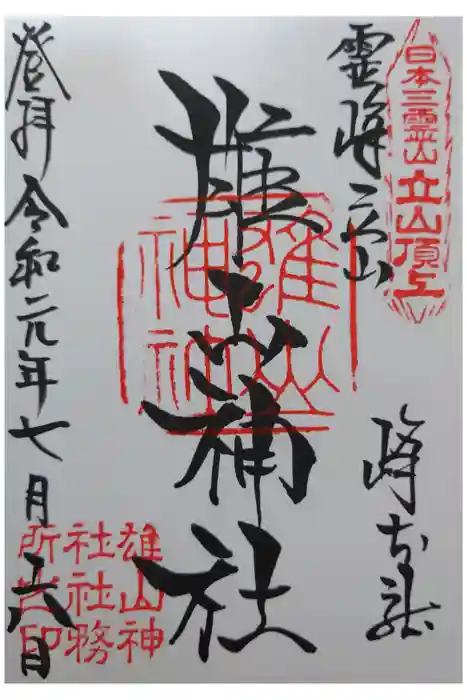 日本三霊山
立山頂上
靈峰立山
峰本社
雄山神社
雄山
神社
登拝 令和元年七月 日
雄山神
社社務
所之印